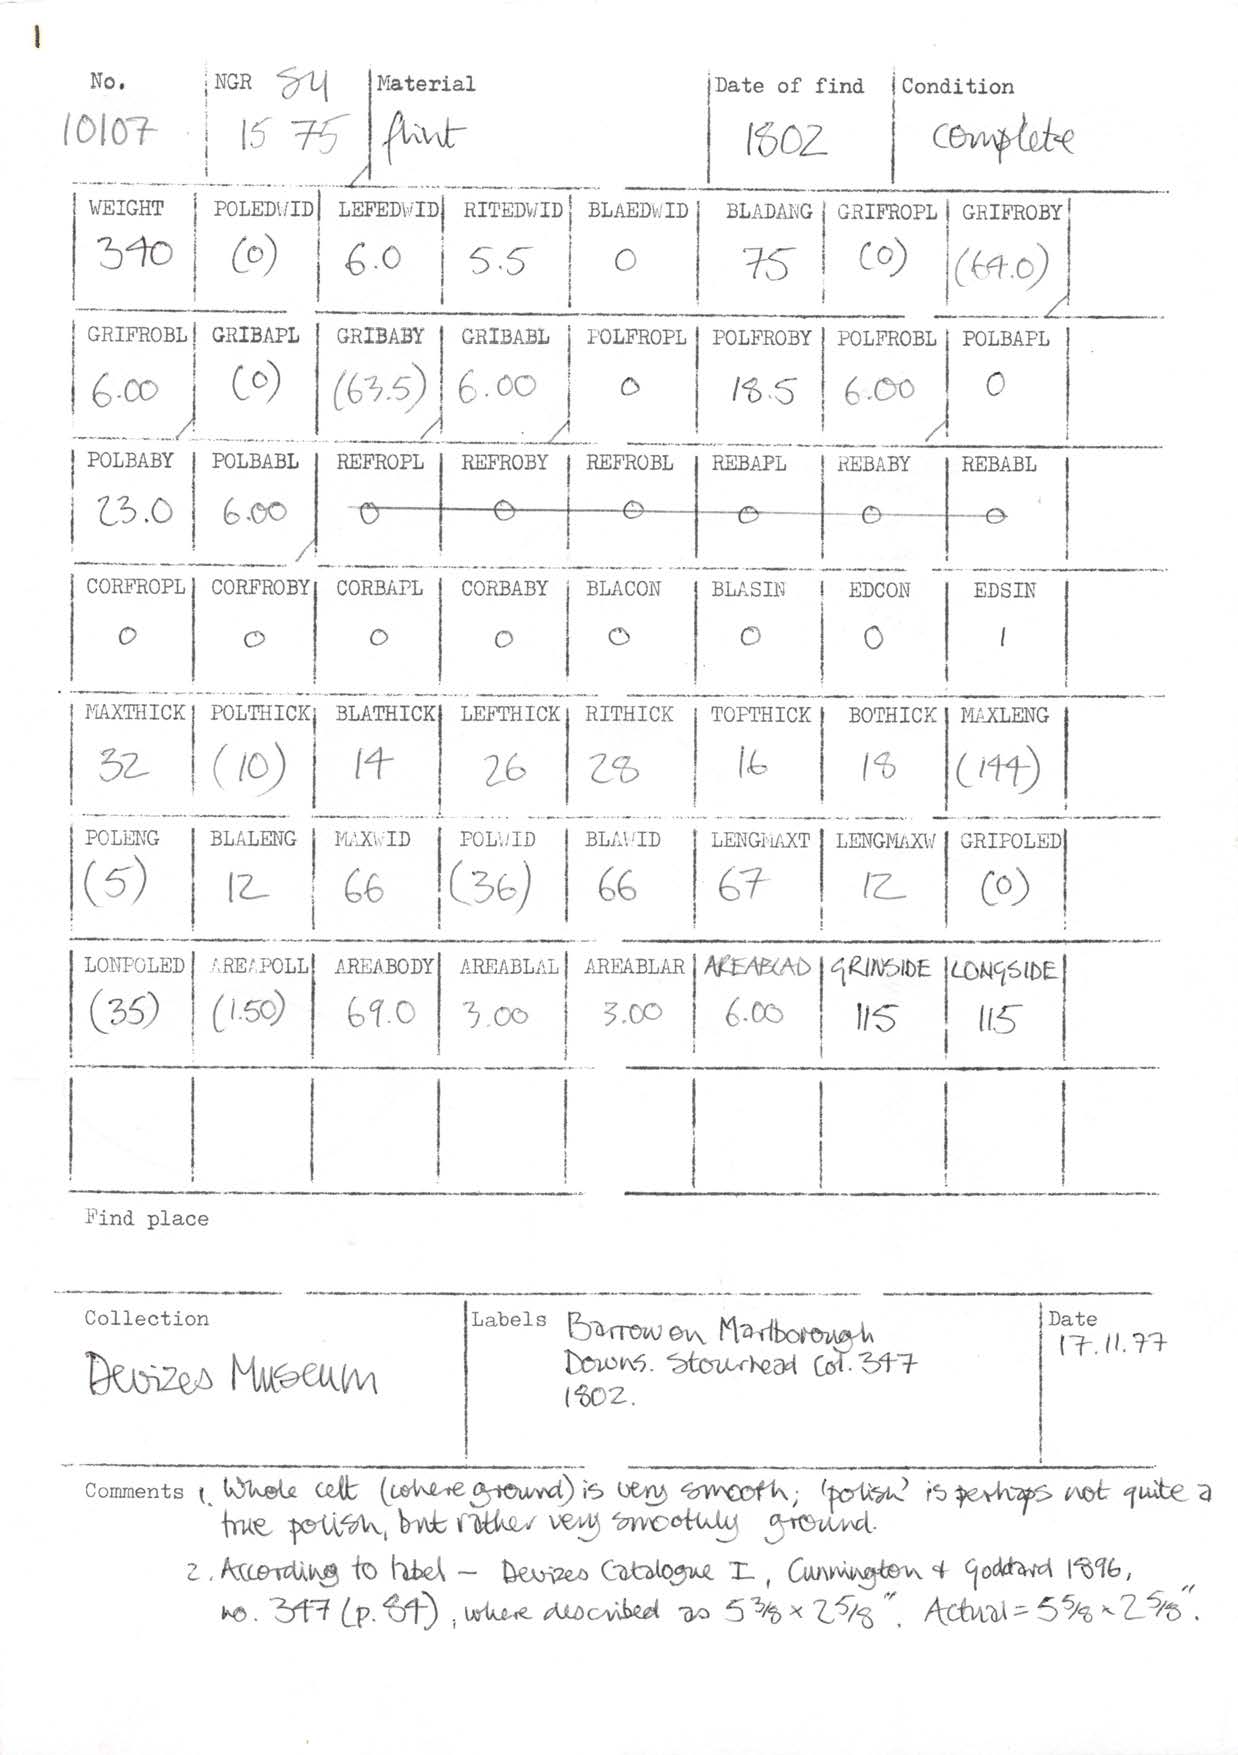 1
No. NGR SU Material Date of find Condition
10107 15 75 flint 1802 complete
WEIGHT POLEDWID LEFEDWID RITEDWID BLAEDWID BLADANG GRIFROPL GRIFROBY
340 (0) 6.0 5.5 0 75 (0) (64.0)
GRIFROBL GRIBAPL GRIBABY GRIBABL POLFROPL POLFROBY POLFROBL POLBAPL
6.00 (0) (63.5) 6.00 0 18.5 6.00 0
POLBABY POLBABL REFROPL REFROBY REFROBL REBAPL REBABY REBABL
23.0 6.00 0 0 0 0 0 0
CORFROPL CORFROBY CORBAPL CORBABY BLACON BLASIN EDCON EDSIN
0 0 0 0 0 0 0 1
MAXTHICK POLTHICK BLATHICK LEFTHICK RITHICK TOPTHICK BOTHICK MAXLENG
32 (10) 14 26 28 16 18 (144)
POLENG BLALENG MAXWID POLWID BLAWID LENGMAXT LENGMAXW GRIPOLED
(5) 12 66 (36) 66 67 12 (0)
LONPOLED AREAPOLL AREABODY AREABLAL AREABLAR AREABLAD GRINSIDE LONGSIDE
(35) (1.50) 69.0 3.00 3.00 6.00 115 115
Find place
Collection Labels Barrow on Marlborough Date
Downs. Stourhead Col. 347 17.11.77
Devizes Museum 1802.
Comments 1. Whole celt (where ground) is very smooth; 'polish' is perhaps not quite a
true polish, but rather very smoothly ground.
2. According to label – Devizes Catalogue I, Cunnington & Goddard 1896,
no. 347 (p. 84), where described as 5 3/8 × 2 5/8". Actual = 5 5/8 × 2 5/8".